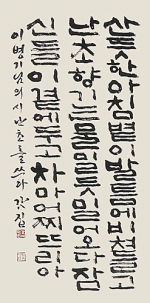 산듯한아침볕이발틈에비쳐들고
난초향기는물밀듯밀어오다잠
신들이곁에두고차마어찌뜨리아
이병기님의 시 난초를